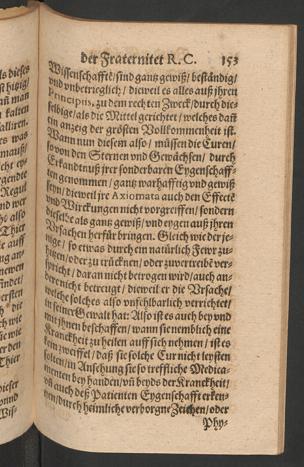 der Fraternitet R. C. 153
Wissenschafft/ sind gantz gewiß/ beständig/
vnd vnbetrieglich/ dieweil es alles auß jhren
Principiis, zu dem rechten Zweck/ durch die-
selbige/ als die Mittel gerichtet/ welches dañ
ein anzeig der grösten Vollkommenheit ist.
Wann nun diesem also/ müssen die Curen/
so von den Sternen vnd Gewächsen/ durch
Erkandtnuß jrer sonderbaren Eygenschaff-
ten genommen/ gantz warhafftig vnd gewiß
seyn/ dieweil jre Axiomata auch den Effectẽ
vnd Wirckungen nicht vorgriffen/ sondern
dieselbe als gantz gewiß/ vnd eygen auß jhren
Vrsachen herfür bringen. Gleich wie der je-
nige/ so etwas durch ein natürlich Fewr zu-
higen/ oder zu trücknen/ oder zuwertreibẽ ver-
spricht/ daran nicht betrogen wird/ auch an-
dere nicht betreugt/ dieweil er die Vrsache/
welche solches also vnfehlbarlich verrichtet/
in seiner Gewalt hat: Also ist es auch bey vnd
mit jhnen beschaffen/ wann sie nemblich eine
Kranckheit zu heilen auff sich nehmen/ ist es
kein zweiffel/ daß sie solche Cur nicht leysten
solten/ in Ansehung sie so treffliche Medica-
menten bey handen/ vñ beyds der Kranckheit/
als auch deß Patienten Eygenschafft erken-
nen/ durch heimliche verborgne Zeichen/ oder
Phy-